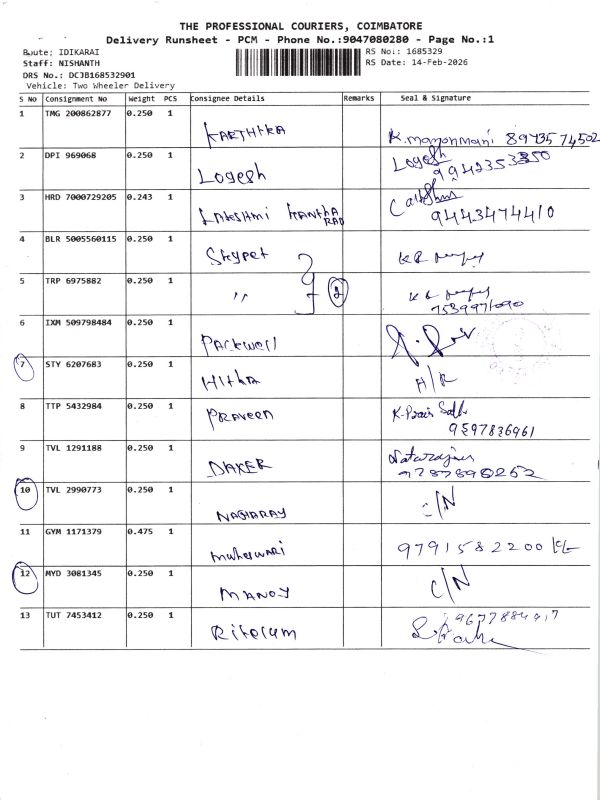 THE PROFESSIONAL COURIERS, COIMBATORE
Delivery Runsheet - PCM - Phone No.:9047080280 - Page No.:1
Route; IDIKARAI
RS No: 1685329
Staff: NISHANTH
RS Date: 14-Feb-2026
DRS No.: DCJB168532901
Vehicle: Two Wheeler Delivery
S No Consignment No Weight PCS Consignee Details Remarks Seal & Signature
1 TMG 200862877 0.250 1 KARTHIKA 8973574502
2 DPI 969068 0.250 1 Logesh Logesh
3 HRD 7000729205 0.243 1 LAKSHMI KANTHA RAO 9443474410
4 BLR 5005560115 0.250 1 Skypet
5 TRP 6975882 0.250 1 " 2
7539971090
6 IXM 509798484 0.250 1 PACKWELL
7 STY 6207683 0.250 1 Hitha A/R
8 TTP 5432984 0.250 1 PRAVEEN
9597836961
9 TVL 1291188 0.250 1 DAKER Natarajan
10 TVL 2990773 0.250 1 NAGARAJ C/N
11 GYM 1171379 0.475 1 Muheswari 9791582200
12 MYD 3081345 0.250 1 MANOJ C/N
13 TUT 7453412 0.250 1